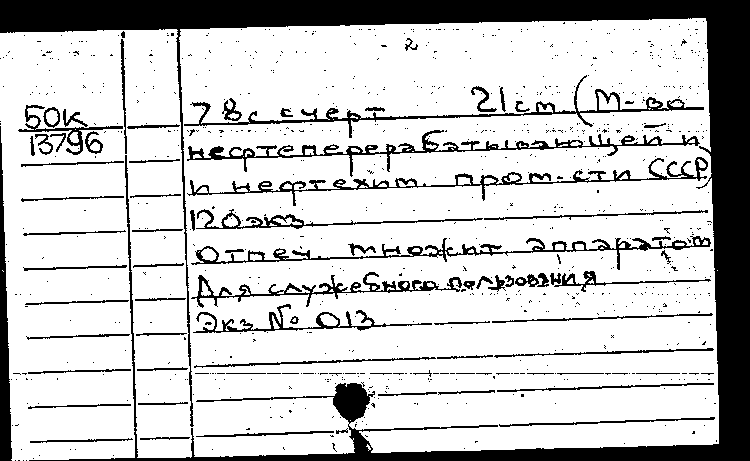 2
50к
13796
78 с с черт 21 cm (М-во
нефтеперерабатывающей и
и нефтехим. пром-сти СССР)
120 экз.
Отпеч. множит. аппаратом
Для служебного пользования
Экз № 013